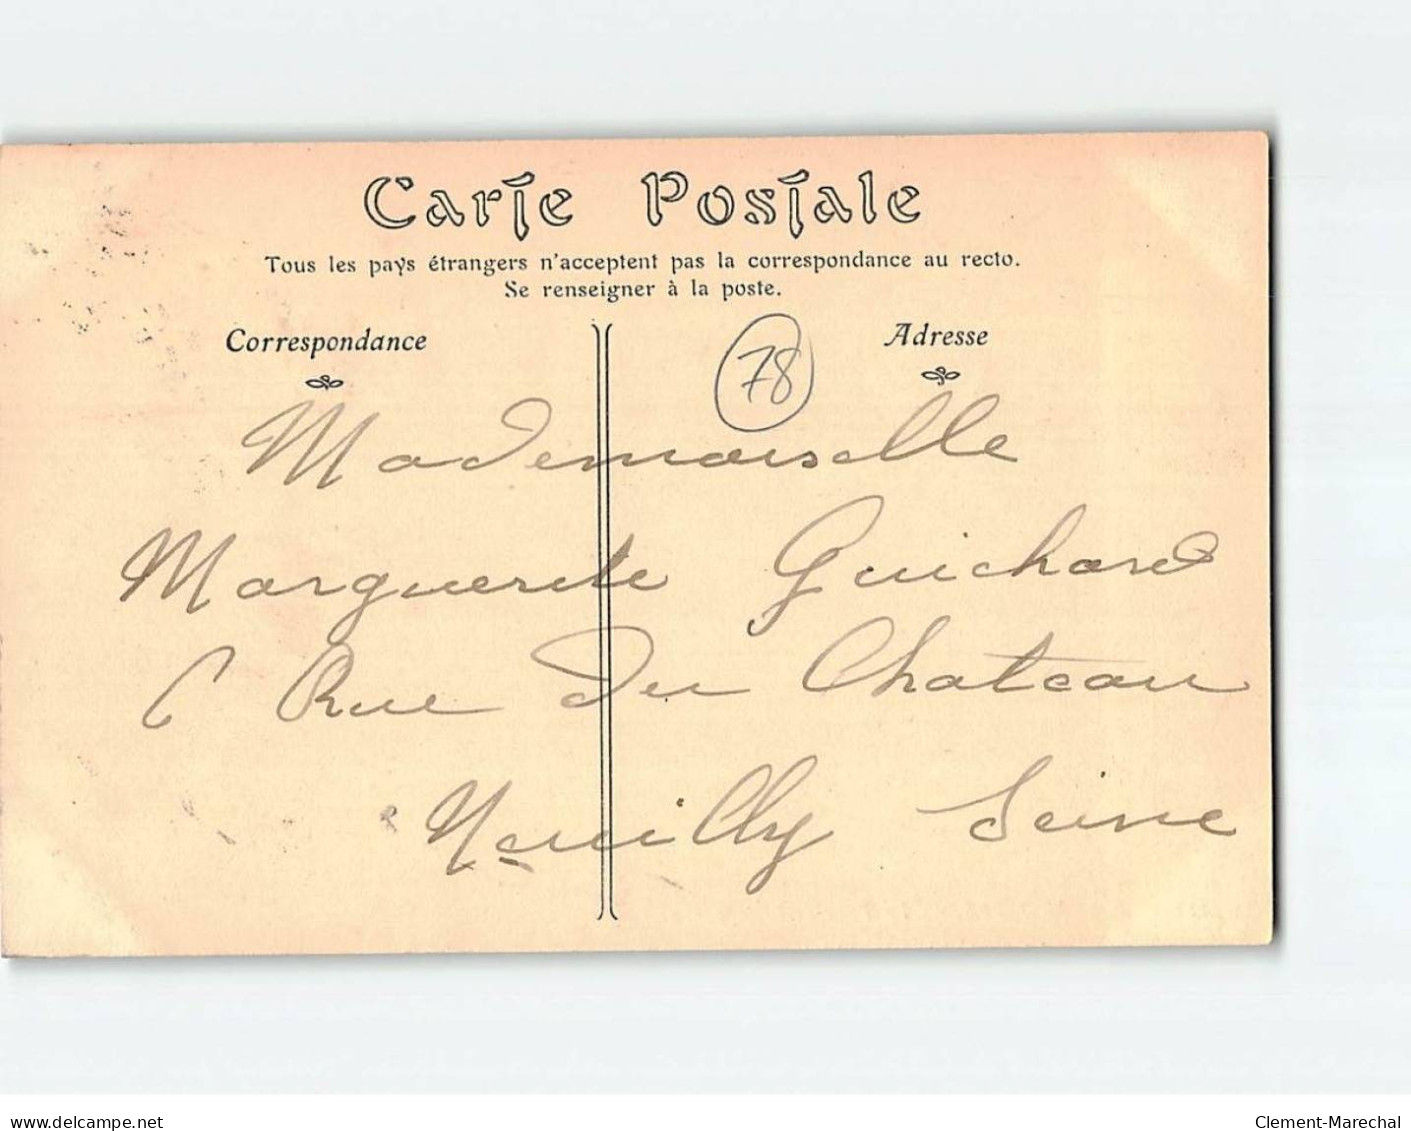 Carte Postale
Tous les pays étrangers n'acceptent pas la correspondance au recto.
Se renseigner à la poste.
Correspondance
Adresse
78
Mademoiselle
Marguerite Guichard
6 Rue du Chateau
Neuilly Seine
delcampe.net
Clement-Marechal